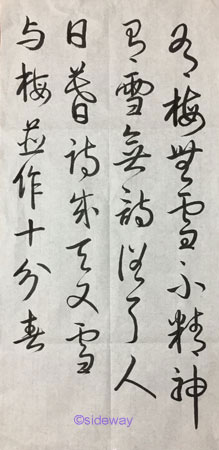 有梅無雪不精神
有雪無詩俗了人
日暮詩成天又雪
与梅並作十分春
©sideway